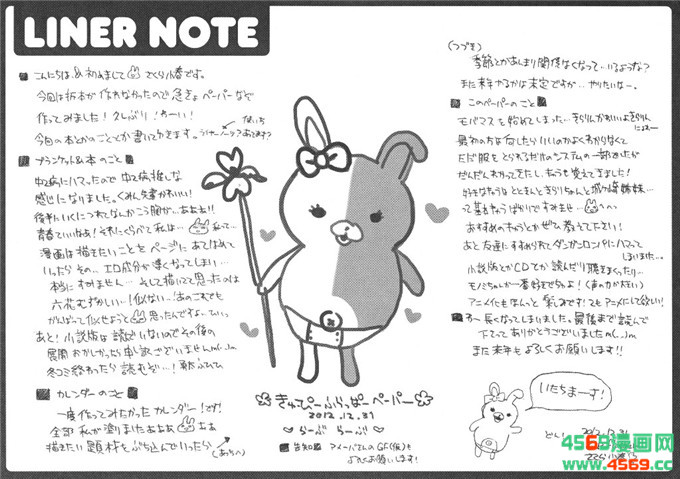 LINER NOTE
こんにちは、& 初めまして さくら小春です。
今回は折本が作れなかったので急きょペーパーなぞ
作ってみました!久しぶり!わーい!
今回の本とかのこととか書いておきます。
ブランケット&本のこと
中2病にハマったので中2病推しな
感じになりました。くみん先輩かわいい!
後半いくにつれてなんかこう胸が…ああぁ!!
青春ていいなぁ!それにくらべて私は… 私…
漫画は描きたいことをページにあてはめて
いったらその…エロ成分が薄くなってしまい…
本当にすみません…そして描いてて思ったのは
六花むずかしい…!似ない…!
がんばって似せようと 思ったんですよ…
あと!小説版は読んでいないのでその後の
展開おかしかったら申し訳ございませんm(_ _)m
冬コミ終わったら読むぞ…!
カレンダーのこと
一度作ってみたかったカレンダー!です!
全部私が塗りましたよぉぉ
描きたい題材をぶち込んでいったら
(あっちへ)
きゃぴーふらっぱーペーパー
2012.12.31
らーぶ らーぶ
告知
よろしくお願いします!
(つづき)
季節とかあんまり関係なくなって…いるような?
また来年やるかは未定ですが…やりたいなー。
このペーパーのこと
モバマスを始めてしまった…きらりんかわいいよきらりん
最初の方は何したらいいのかよくわからなくて
だんだんわかってきたし、ちゃんと覚えてきました!
好きなキャラはとときんときらりちゃんと城ヶ崎姉妹…
って基本キャラばかりですみません…
おすすめのキャラとかぜひ教えて下さい!
あと友達にすすめられてダンガンロンパにハマって
しまいました。
小説版とかCDとか読んだり聴きまくったり…
モノミちゃんが一番好きですかね!(声の力がすごい)
アニメ化もなんと!楽しみです!2もアニメにして欲しい!
長くなってしまいました。最後まで読んで
下さってありがとうございましたm(_ _)m
また来年もよろしくお願いします!!
いたちまーす!
どん!
2012.12.31
4569漫画网
www.4569.com